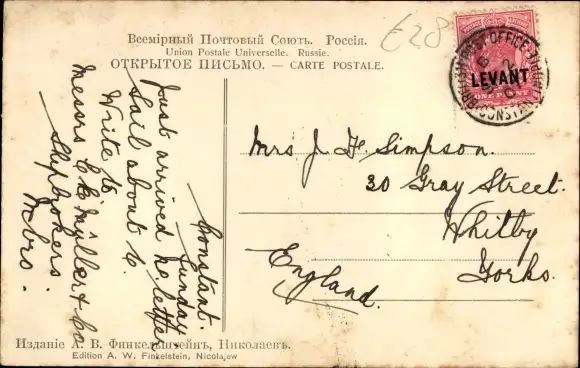 Всемірный Почтовый Союзъ. Россія.
Union Postale Universelle. Russie.
ОТКРЫТОЕ ПИСЬМО. — CARTE POSTALE.
£28
BRITISH POST OFFICE
CONSTAN
LEVANT
ONE PENNY
Constant.
Sunday.
Just arrived no letter
Sail about 6.
Write to
Messrs C K Müller & Co
Shipbrokers
Mrs J. H. Simpson.
30 Gray Street.
Whitby
Yorks.
England.
Изданіе А. В. Финкельштейнъ, Николаевъ.
Edition A. W. Finkelstein, Nicolajew